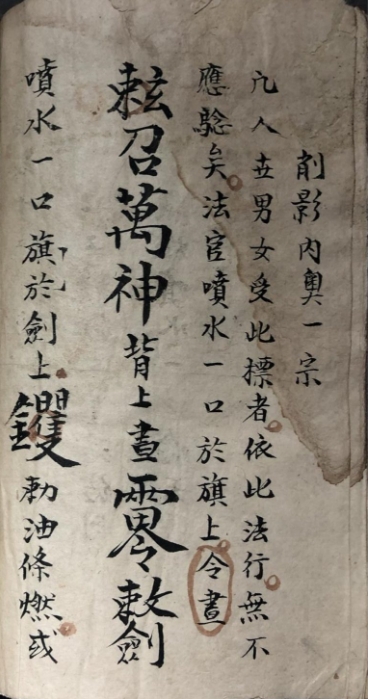 削影內奧一宗
凢人世男女受此摽者依此法行無不
應騐矣法官噴水一口於旗上令畫
敕召萬神背上畫敕劍
噴水一口旗於劍上勅油條燃或